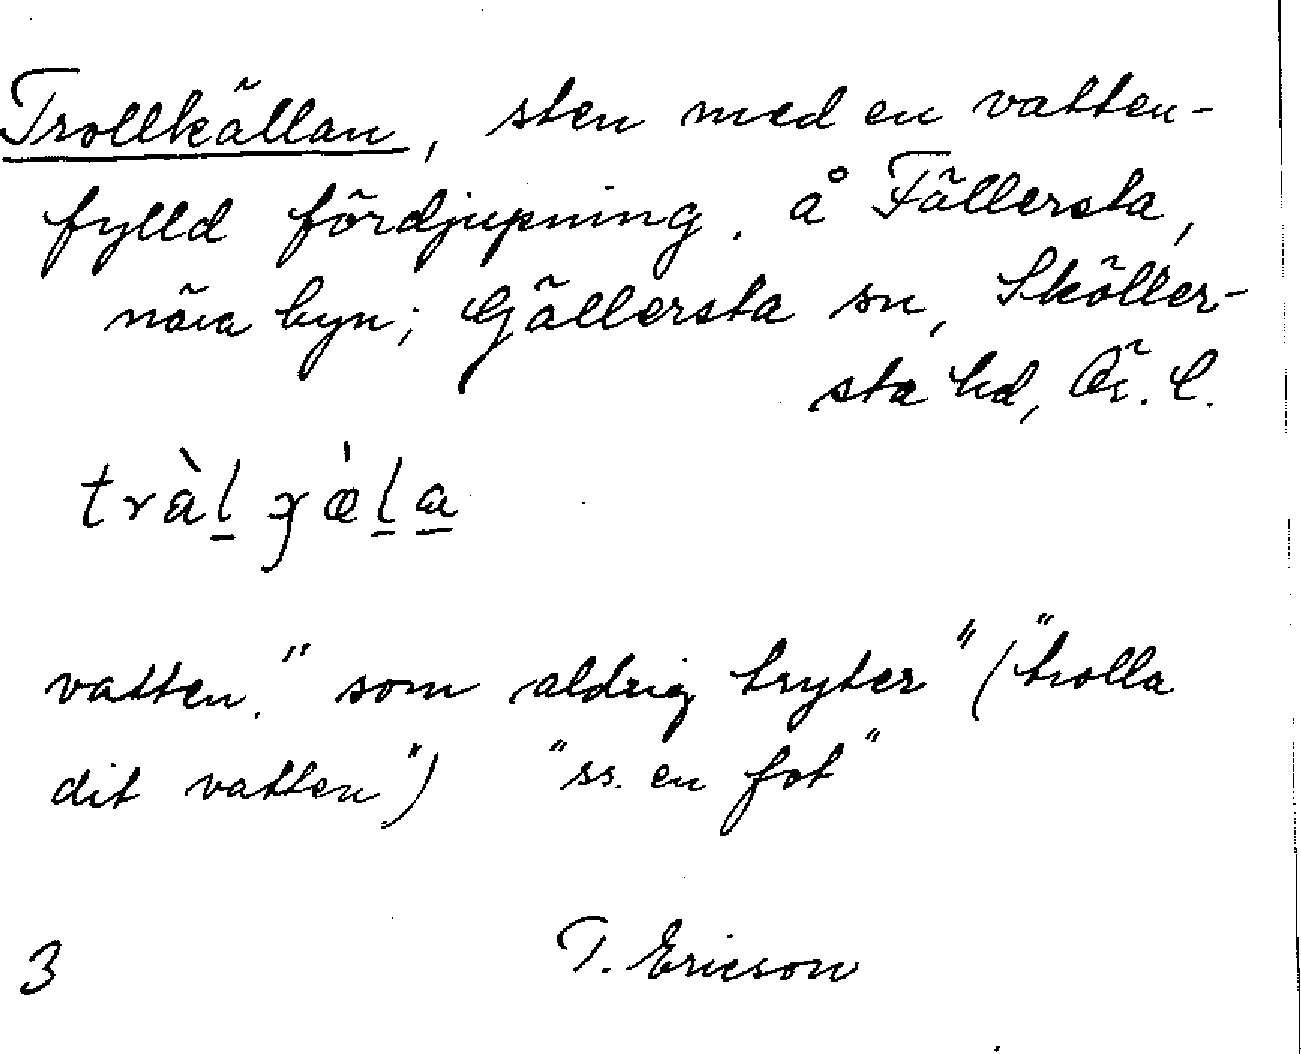 Trollkällan, sten med en vatten-
fylld fördjupning. å Fällersta,
nära byn; Gällersta sn, Sköller-
sta hd, Ör. l.
vatten. "som aldrig tryter" ("trolla
dit vatten") "ss. en fot"
3 T. Ericson